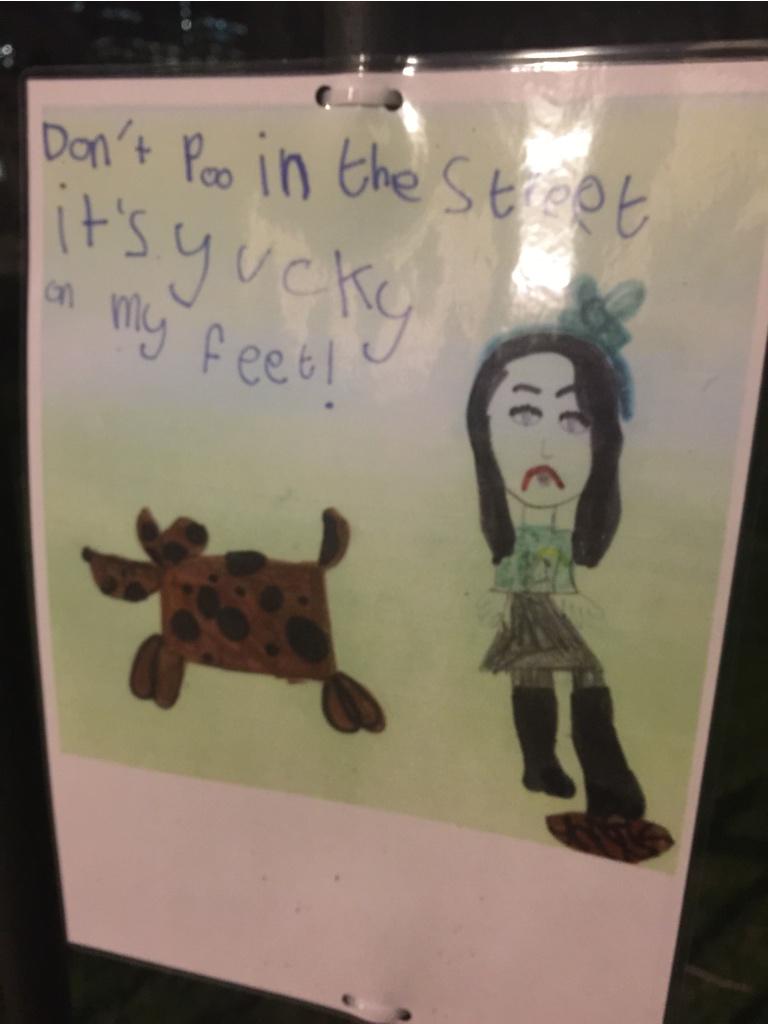 Don't Poo in the Street
it's yucky
on my feet!